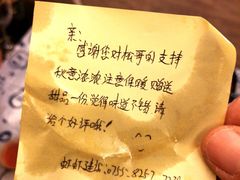 亲:
感谢您对松哥的支持
秋意浓浓注意保暖赠送
甜品一份觉得味道不错请
给个好评哦!
虾虾建议:0755-8257